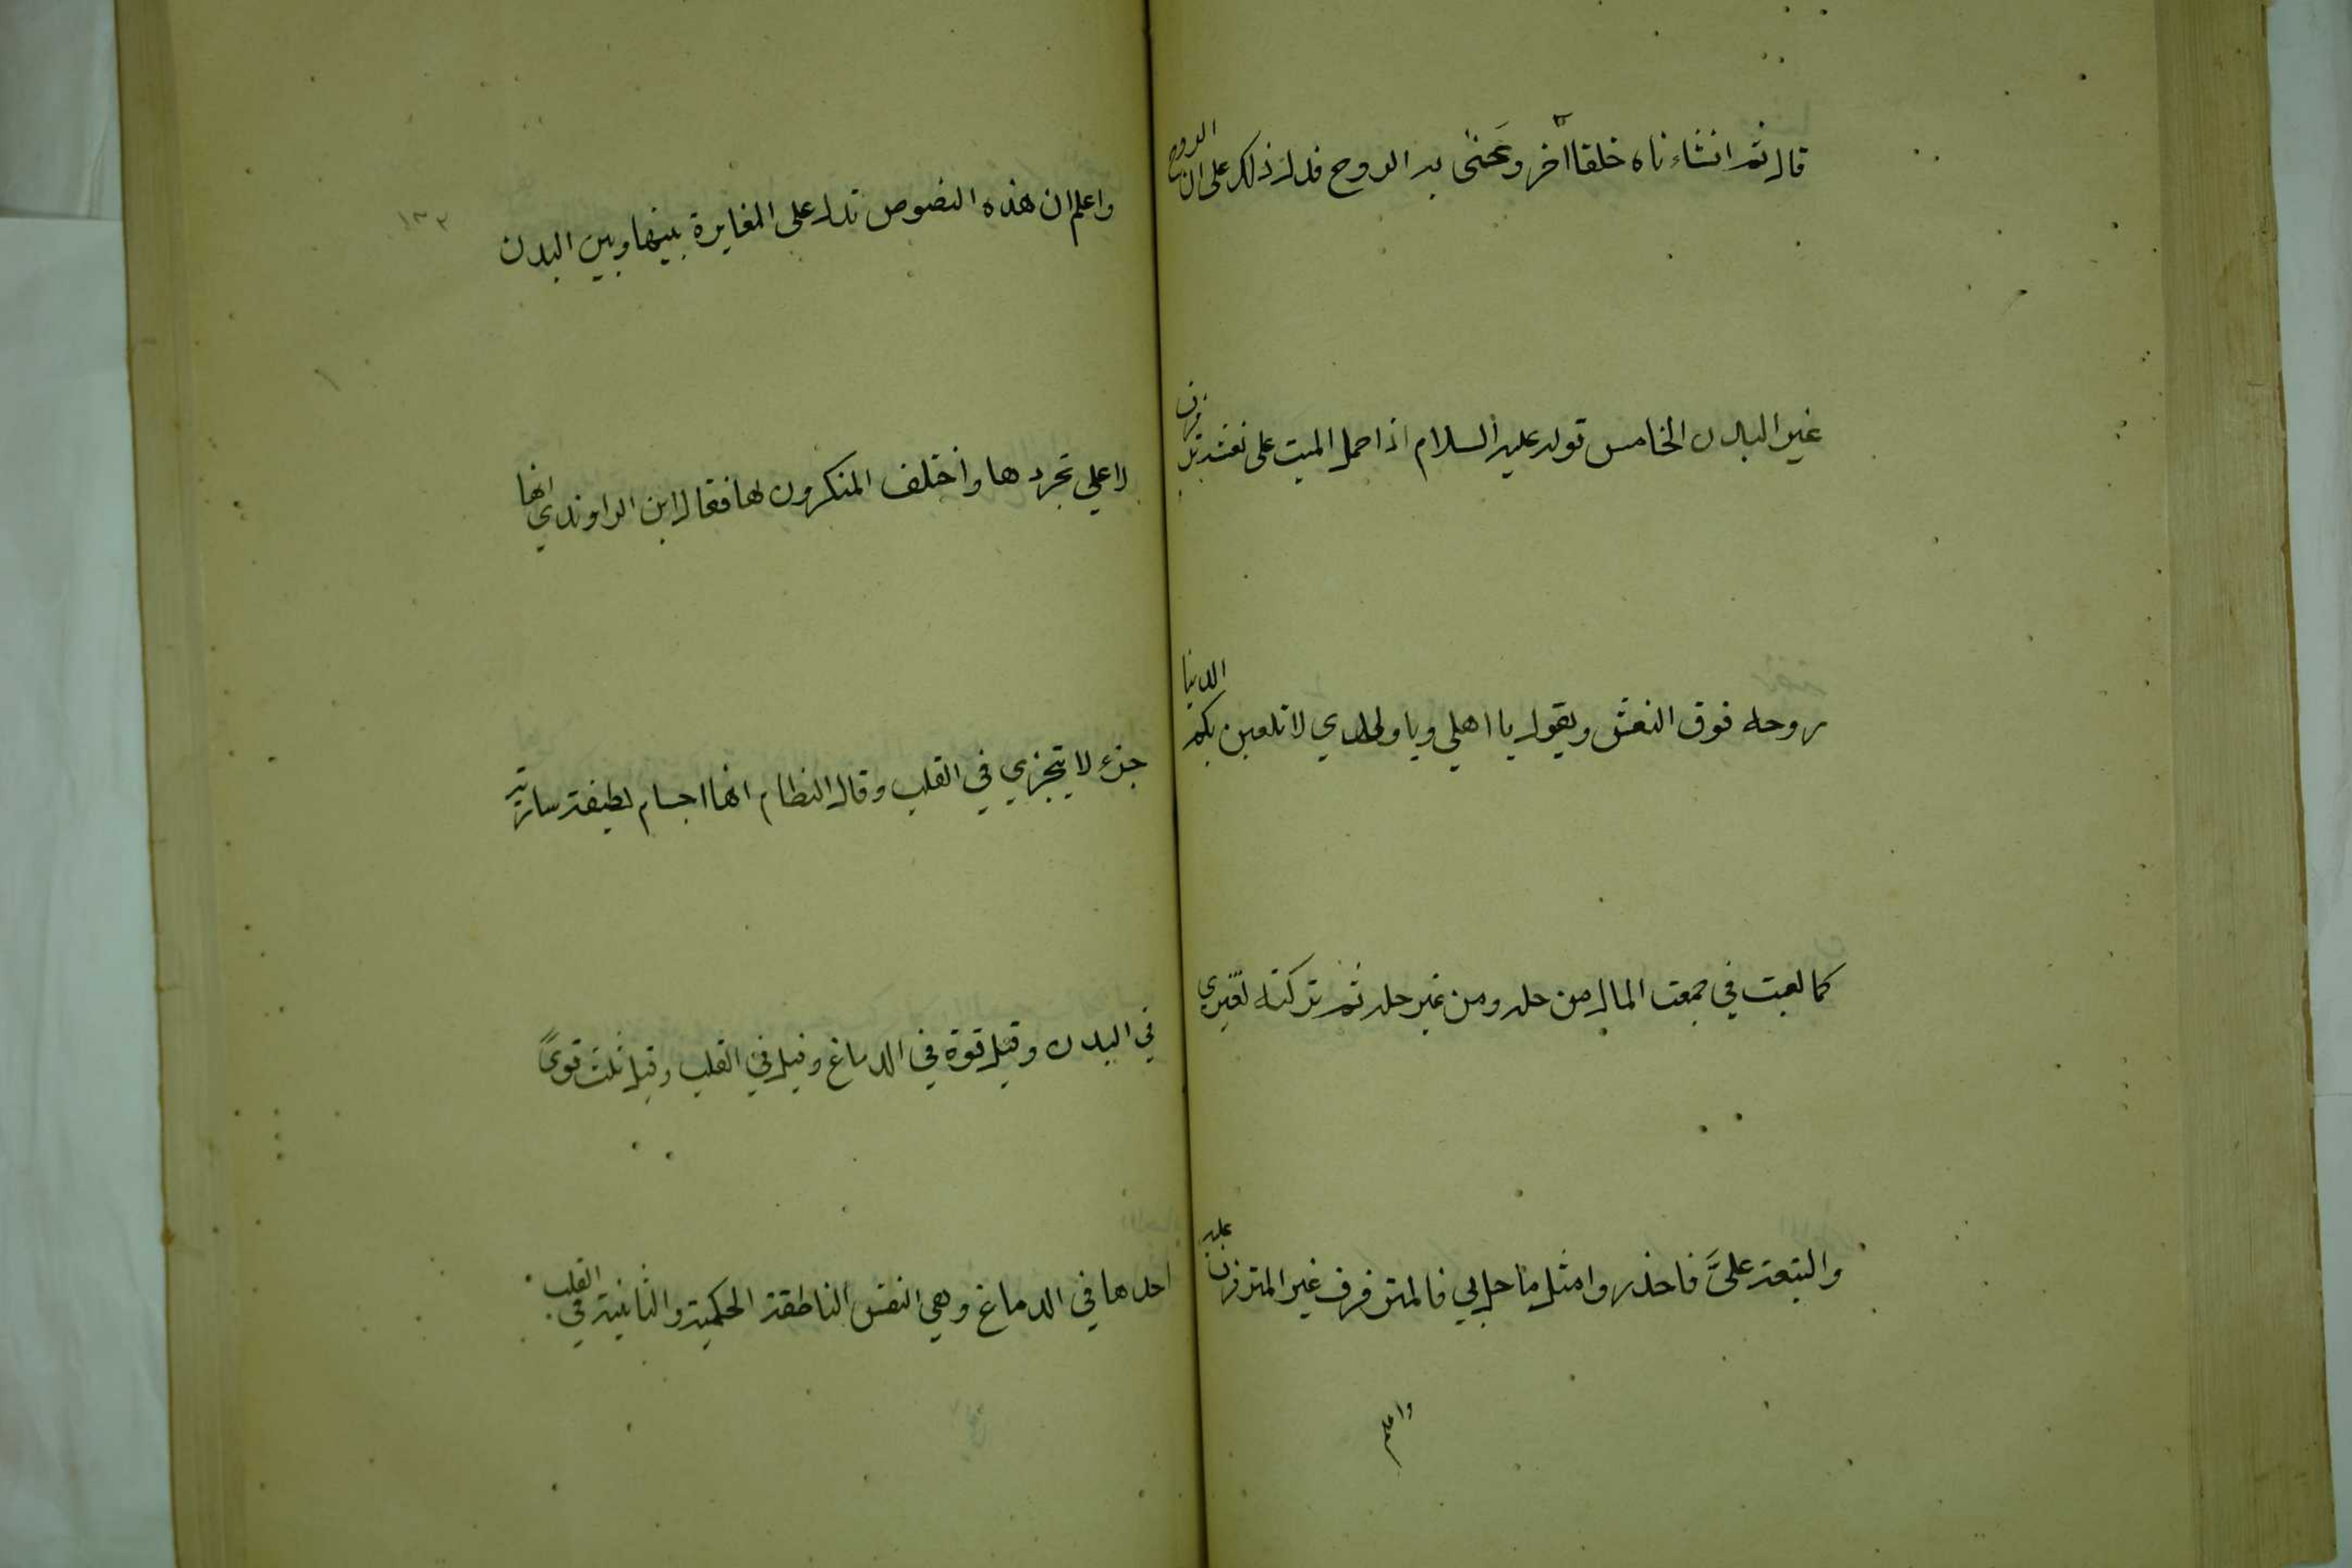 قال ثم انشاءناه خلقا آخر وعنى به الروح فدل ذلك على ان الروح
غير البدن الخامس قوله عليه السلام اذا حمل الميت على نعشه ترفرف
روحه فوق النعش ويقول يا اهلي ويا ولدي لا تلعبن بكم الدنيا
كما لعبت في جمعت المال من حله ومن غير حله ثم تركته لغيري
والتبعة علىَّ فاحذروا مثل ما حل بي فالمترفرف غير المترفرف عليه
واعلم
١٣٢
واعلم ان هذه النصوص تدل على المغايرة بينها وبين البدن
لا علي تجردها واختلف المنكرون لها فقال ابن الراوندي انها
جزء لا يتجزي في القلب وقال النظام انها اجسام لطيفة سارية
في البدن وقيل قوة في الدماغ وقيل في القلب وقيل ثلث قوىً
احدها في الدماغ وهي النفس الناطقة الحكمية والثانية في القلب